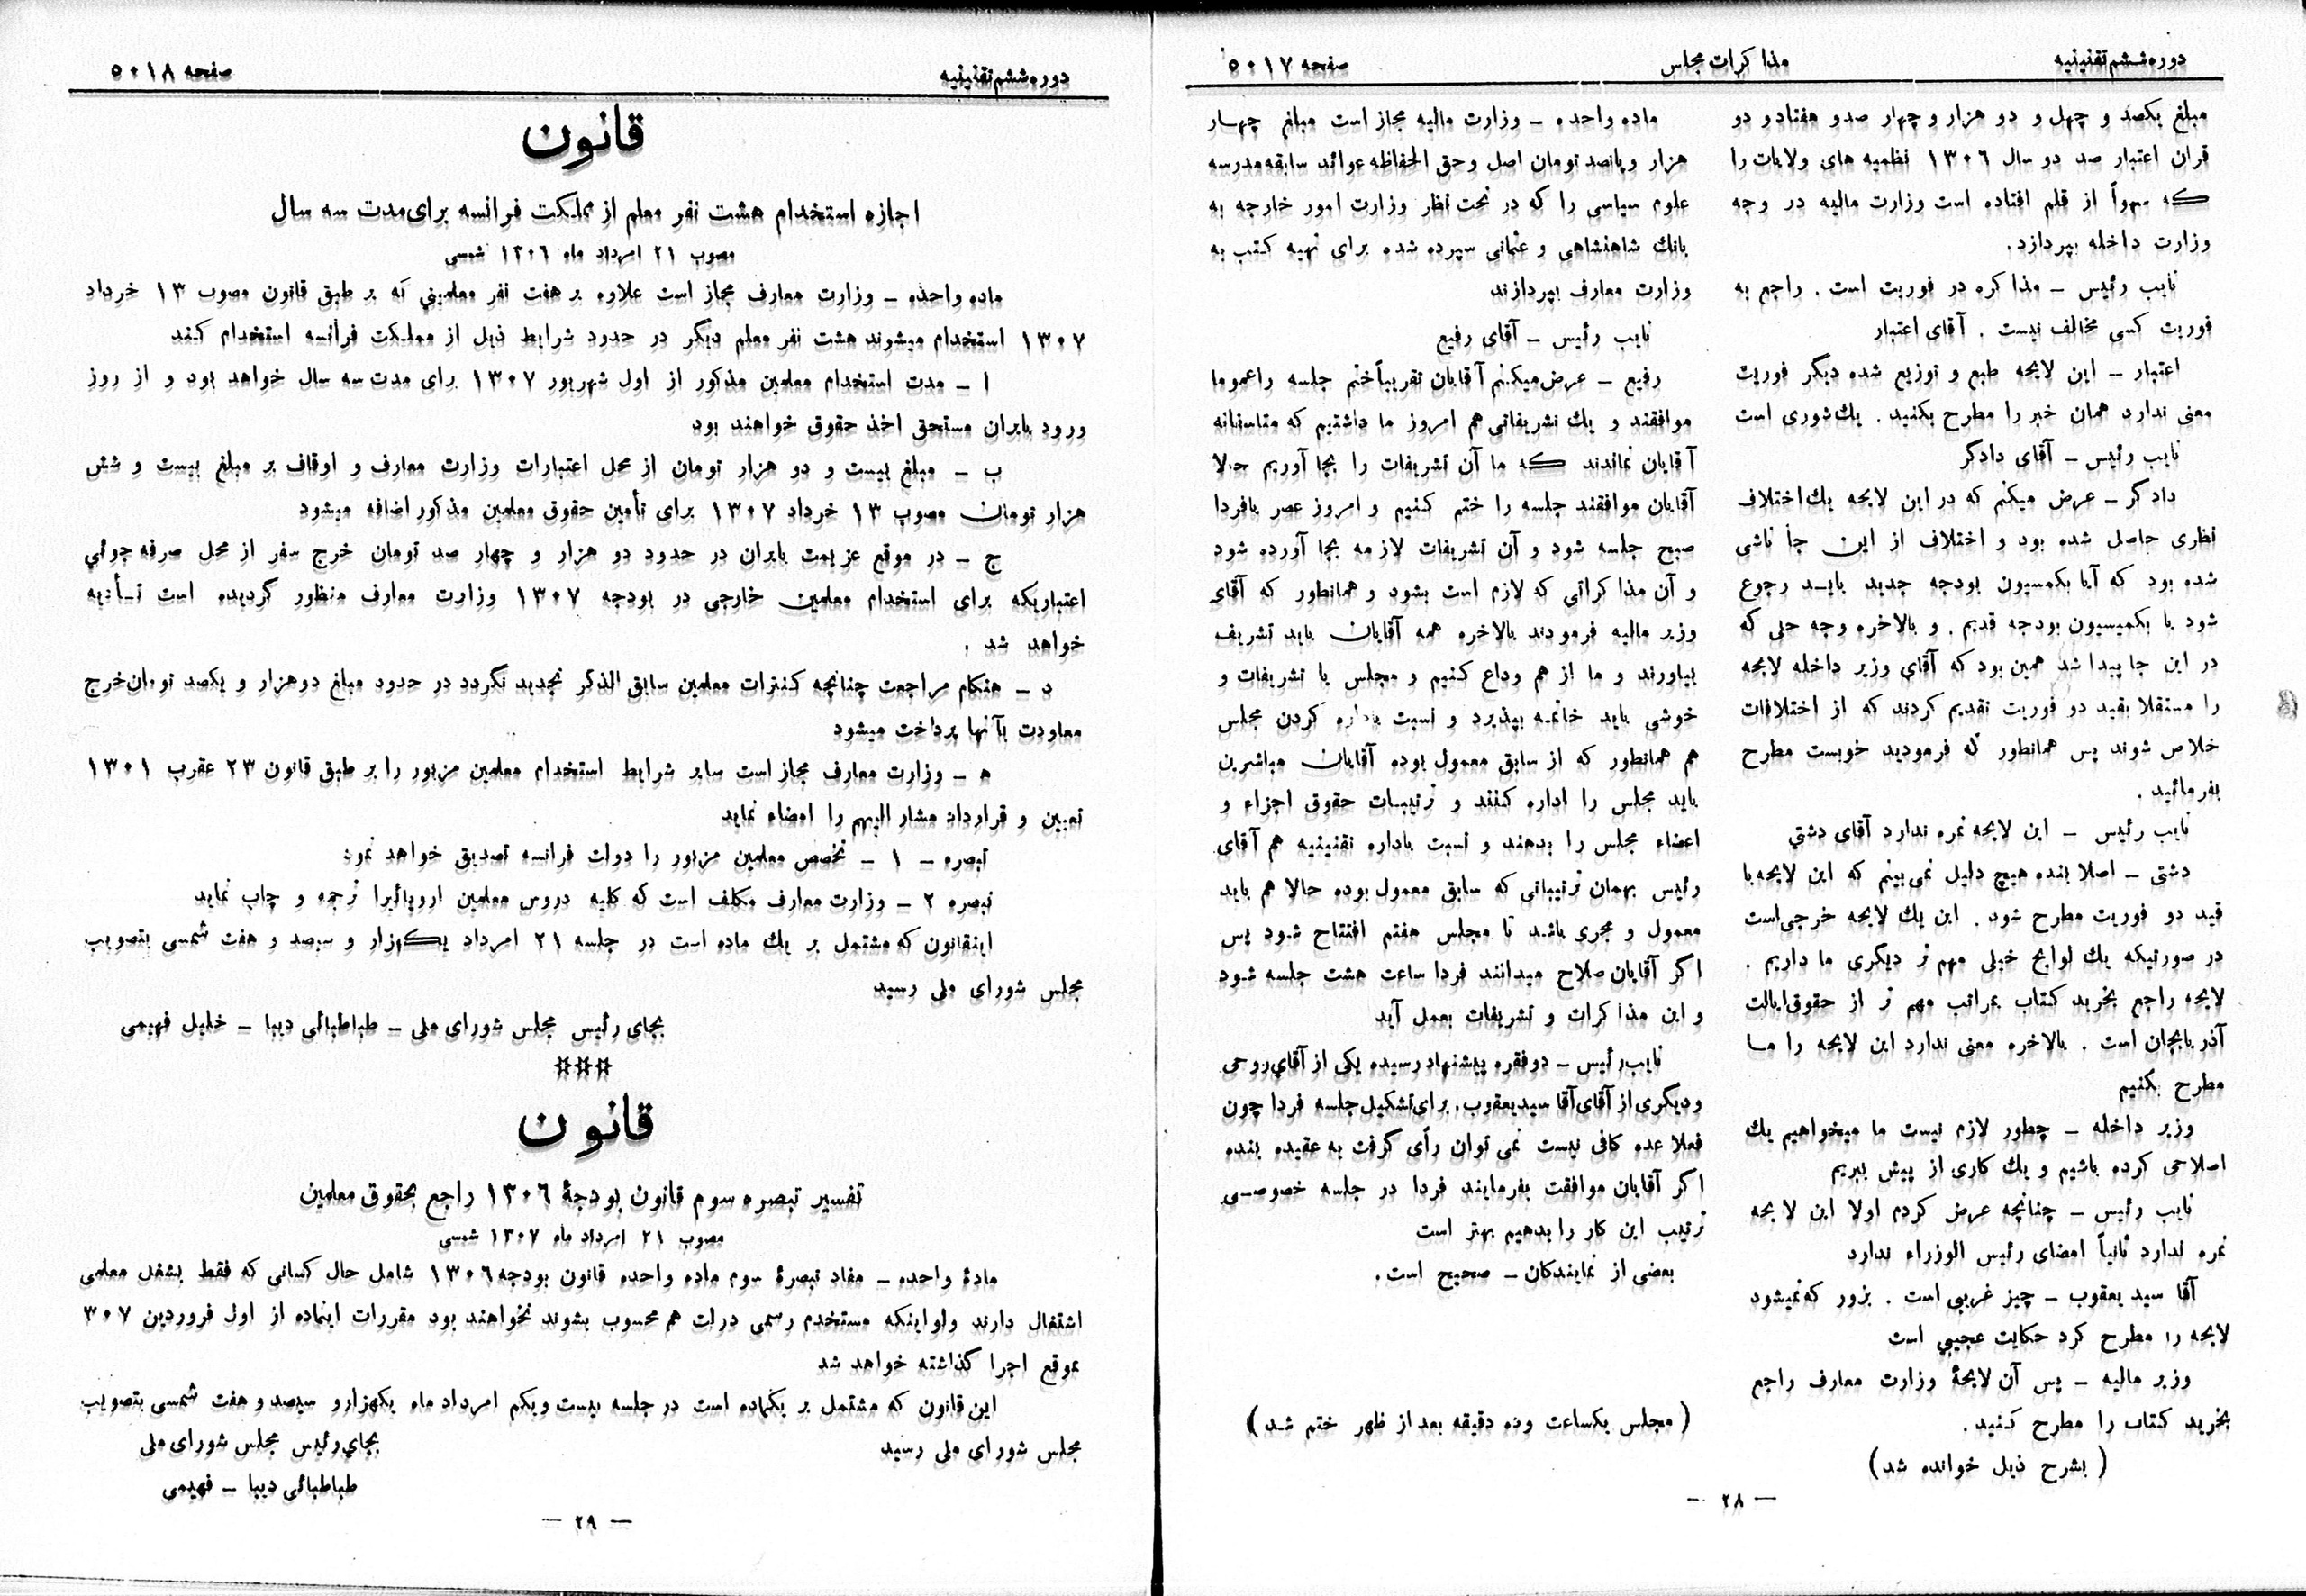 دوره ششم تقنینیه
مذاکرات مجلس
صفحه ۵۰۱۷
مبلغ یکصد و چهل و دو هزار و چهار صد و هفتاد و دو
قران اعتبار صد دو سال ۱۳۰۶ نظمیه های ولایات را
که سهواً از قلم افتاده است وزارت مالیه در وجه
وزارت داخله بپردازد.
نایب رئیس ـ مذاکره در فوریت است . راجع به
فوریت کسی مخالف نیست . آقای اعتبار
اعتبار ـ این لایحه طبع و توزیع شده دیگر فوریت
معنی ندارد همان خبر را مطرح بکنید . یك شوری است
نایب رئیس ـ آقای دادگر
دادگر ـ عرض میکنم که در این لایحه یك اختلاف
نظری حاصل شده بود و اختلاف از این جا ناشی
شده بود که آیا بکمسیون بودجه جدید بایـد رجوع
شود یا بکمیسیون بودجه قدیم . و بالاخره وجه حلی که
در این جا پیدا شد همین بود که آقای وزیر داخله لایحه
را مستقلا بقید دو فوریت تقدیم کردند که از اختلافات
خلاص شوند پس همانطور که فرمودید خوبست مطرح
بفرمائید .
نایب رئیس ـ این لایحه نمره ندارد آقای دشتی
دشتی ـ اصلا بنده هیچ دلیل نمی بینم که این لایحه با
قید دو فوریت مطرح شود . این یك لایحه خرجی است
در صورتیکه یك لوایح خیلی مهم تر دیگری ما داریم .
لایحه راجع بخرید کتاب بمراتب مهم تر از حقوق ایالت
آذربایجان است . بالاخره معنی ندارد این لایحه را مـا
مطرح بکنیم
وزیر داخله ـ چطور لازم نیست ما میخواهیم یك
اصلاحی کرده باشیم و یك کاری از پیش ببریم
نایب رئیس ـ چنانچه عرض کردم اولا این لایحه
نمره ندارد ثانیاً امضای رئیس الوزراء ندارد
آقا سید یعقوب ـ چیز غریبی است . بزور که نمیشود
لایحه را مطرح کرد حکایت عجیبی است
وزیر مالیه ـ پس آن لایحهٔ وزارت معارف راجع
بخرید کتاب را مطرح کنید .
( بشرح ذیل خوانده شد )
ماده واحده ـ وزارت مالیه مجاز است مبلغ چهـار
هزار و پانصد تومان اصل و حق الحفاظه عوائد سابقه مدرسه
علوم سیاسی را که در تحت نظر وزارت امور خارجه به
بانك شاهنشاهی و عثمانی سپرده شده برای تهیه کتب به
وزارت معارف بپردازند
نایب رئیس ـ آقای رفیع
رفیع ـ عرض میکنم آقایان تقریباً ختم جلسه را عموما
موافقند و یك تشریفاتی هم امروز ما داشتیم که متاسفانه
آقایان نماندند که ما آن تشریفات را بجا آوریم حالا
آقایان موافقند جلسه را ختم کنیم و امروز عصر یا فردا
صبح جلسه شود و آن تشریفات لازمه بجا آورده شود
و آن مذاکراتی که لازم است بشود و همانطور که آقای
وزیر مالیه فرمودند بالاخره همه آقایان باید تشریف
بیاورند و ما از هم وداع کنیم و مجلس با تشریفات و
خوشی باید خاتمه بپذیرد و نسبت باداره کردن مجلس
هم همانطور که از سابق معمول بوده آقایان مباشرین
باید مجلس را اداره کنند و ترتیبـات حقوق اجزاء و
اعضاء مجلس را بدهند و نسبت باداره تقنینیه هم آقای
رئیس بهمان ترتیباتی که سابق معمول بوده حالا هم باید
معمول و مجری باشد تا مجلس هفتم افتتاح شود پس
اگر آقایان صلاح میدانند فردا ساعت هشت جلسه شود
و این مذاکرات و تشریفات بعمل آید
نایب رئیس ـ دو فقره پیشنهاد رسیده یکی از آقای روحی
و دیگری از آقای آقا سید یعقوب. برای تشکیل جلسه فردا چون
فعلا عده کافی نیست نمی توان رأی گرفت به عقیده بنده
اگر آقایان موافقت بفرمایند فردا در جلسه خصوصـی
ترتیب این کار را بدهیم بهتر است
بعضی از نمایندگان ـ صحیح است .
( مجلس یکساعت و ده دقیقه بعد از ظهر ختم شد )
— ۲۸ —
دوره ششم تقنینیه
صفحه ۵۰۱۸
قانون
اجازه استخدام هشت نفر معلم از مملکت فرانسه برای مدت سه سال
مصوب ۲۱ امرداد ماه ۱۳۰۶ شمسی
ماده واحده ـ وزارت معارف مجاز است علاوه بر هفت نفر معلمینی که بر طبق قانون مصوب ۱۳ خرداد
۱۳۰۷ استخدام میشوند هشت نفر معلم دیگر در حدود شرایط ذیل از مملکت فرانسه استخدام کند
ا ـ مدت استخدام معلمین مذکور از اول شهریور ۱۳۰۷ برای مدت سه سال خواهد بود و از روز
ورود بایران مستحق اخذ حقوق خواهند بود
ب ـ مبلغ بیست و دو هزار تومان از محل اعتبارات وزارت معارف و اوقاف بر مبلغ بیست و شش
هزار تومان مصوب ۱۳ خرداد ۱۳۰۷ برای تأمین حقوق معلمین مذکور اضافه میشود
ج ـ در موقع عزیمت بایران در حدود دو هزار و چهار صد تومان خرج سفر از محل صرفه جوئی
اعتباریکه برای استخدام معلمین خارجی در بودجه ۱۳۰۷ وزارت معارف منظور گردیده است تـأدیه
خواهد شد .
د ـ هنگام مراجعت چنانچه کنترات معلمین سابق الذکر تجدید نگردد در حدود مبلغ دو هزار و یکصد تومان خرج
معاودت بآنها پرداخت میشود
ه ـ وزارت معارف مجاز است سایر شرایط استخدام معلمین مزبور را بر طبق قانون ۲۳ عقرب ۱۳۰۱
تعیین و قرارداد مشار الیهم را امضاء نماید
تبصره ـ ۱ ـ تخصص معلمین مزبور را دولت فرانسه تصدیق خواهد نمود
تبصره ۲ ـ وزارت معارف مکلف است که کلیه دروس معلمین اروپائیرا ترجمه و چاپ نماید
اینقانون که مشتمل بر یك ماده است در جلسه ۲۱ امرداد یکهزار و سیصد و هفت شمسی بتصویب
مجلس شورای ملی رسید
بجای رئیس مجلس شورای ملی ـ طباطبائی دیبا ـ خلیل فهیمی
***
قانون
تفسیر تبصره سوم قانون بودجهٔ ۱۳۰۶ راجع بحقوق معلمین
مصوب ۲۱ امرداد ماه ۱۳۰۷ شمسی
مادهٔ واحده ـ مفاد تبصرهٔ سوم ماده واحده قانون بودجه ۱۳۰۶ شامل حال کسانی که فقط بشغل معلمی
اشتغال دارند ولو اینکه مستخدم رسمی دولت هم محسوب بشوند نخواهند بود مقررات اینماده از اول فروردین ۳۰۷
بموقع اجرا گذاشته خواهد شد
این قانون که مشتمل بر یکماده است در جلسه بیست و یکم امرداد ماه یکهزار و سیصد و هفت شمسی بتصویب
مجلس شورای ملی رسید
بجای رئیس مجلس شورای ملی
طباطبائی دیبا ـ فهیمی
— ۲۹ —